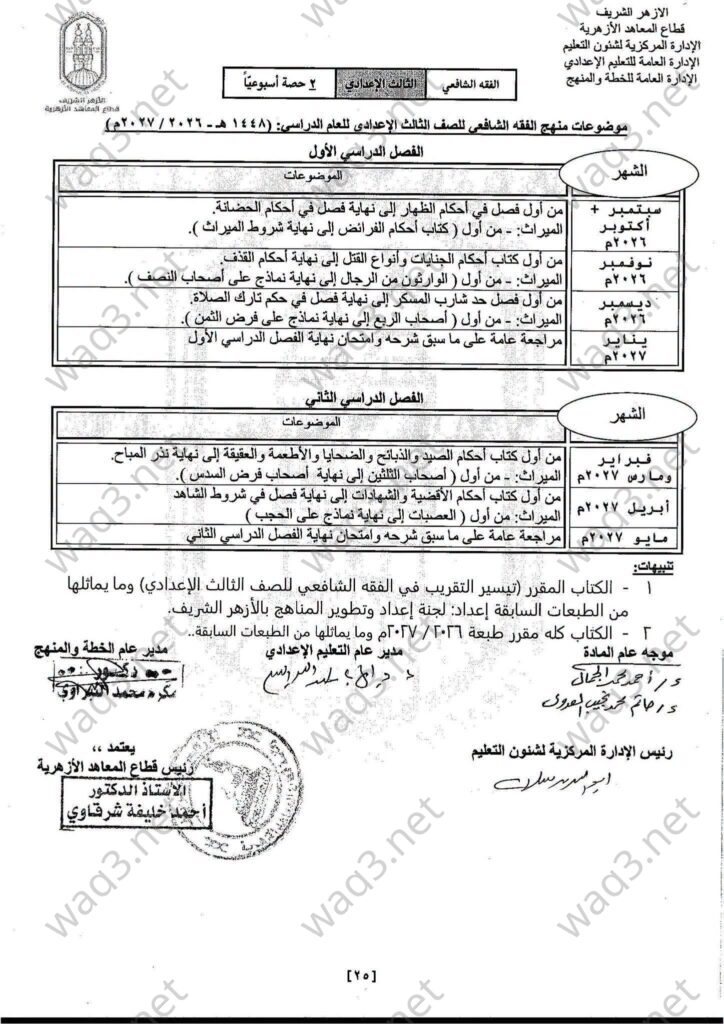 الازهر الشريف
قطاع المعاهد الأزهرية
الإدارة المركزية لشئون التعليم
الإدارة العامة للتعليم الإعدادي
الإدارة العامة للخطة والمنهج
الأزهر الشريف
قطاع المعاهد الأزهرية
الفقه الشافعي
الثالث الإعدادي
٢ حصة أسبوعياً
موضوعات منهج الفقه الشافعي للصف الثالث الإعدادي للعام الدراسي: (١٤٤٨ هـ - ٢٠٢٦ / ٢٠٢٧م )
الفصل الدراسي الأول
الشهر
الموضوعات
سبتمبر + أكتوبر ٢٠٢٦م
من أول فصل في أحكام الظهار إلى نهاية فصل في أحكام الحضانة.
الميراث: - من أول ( كتاب أحكام الفرائض إلى نهاية شروط الميراث ).
نوفمبر ٢٠٢٦م
من أول كتاب أحكام الجنايات وأنواع القتل إلى نهاية أحكام القذف.
الميراث: - من أول ( الوارثون من الرجال إلى نهاية نماذج على أصحاب النصف ).
ديسمبر ٢٠٢٦م
من أول فصل حد شارب المسكر إلى نهاية فصل في حكم تارك الصلاة.
الميراث: - من أول ( أصحاب الربع إلى نهاية نماذج على فرض الثمن ).
يناير ٢٠٢٧م
مراجعة عامة على ما سبق شرحه وامتحان نهاية الفصل الدراسي الأول
الفصل الدراسي الثاني
الشهر
الموضوعات
فبراير ومارس ٢٠٢٧م
من أول كتاب أحكام الصيد والذبائح والضحايا والأطعمة والعقيقة إلى نهاية نذر المباح.
الميراث: - من أول ( أصحاب الثلثين إلى نهاية أصحاب فرض السدس ).
أبريل ٢٠٢٧م
من أول كتاب أحكام الأقضية والشهادات إلى نهاية فصل في شروط الشاهد
الميراث: من أول ( العصبات إلى نهاية نماذج على الحجب )
مايو ٢٠٢٧م
مراجعة عامة على ما سبق شرحه وامتحان نهاية الفصل الدراسي الثاني
تنبيهات:
١ - الكتاب المقرر (تيسير التقريب في الفقه الشافعي للصف الثالث الإعدادي) وما يماثلها
من الطبعات السابقة إعداد: لجنة إعداد وتطوير المناهج بالأزهر الشريف.
٢ - الكتاب كله مقرر طبعة ٢٠٢٦ / ٢٠٢٧م وما يماثلها من الطبعات السابقة..
موجه عام المادة
مدير عام التعليم الإعدادي
مدير عام الخطة والمنهج
د/ أحمد محمد الجمالي
دكتور
مكرم محمد الشبراوي
رئيس الإدارة المركزية لشئون التعليم
يعتمد ،،
رئيس قطاع المعاهد الأزهرية
الأستاذ الدكتور
أحمد خليفة شرقاوي
[٢٥]
waq3.net